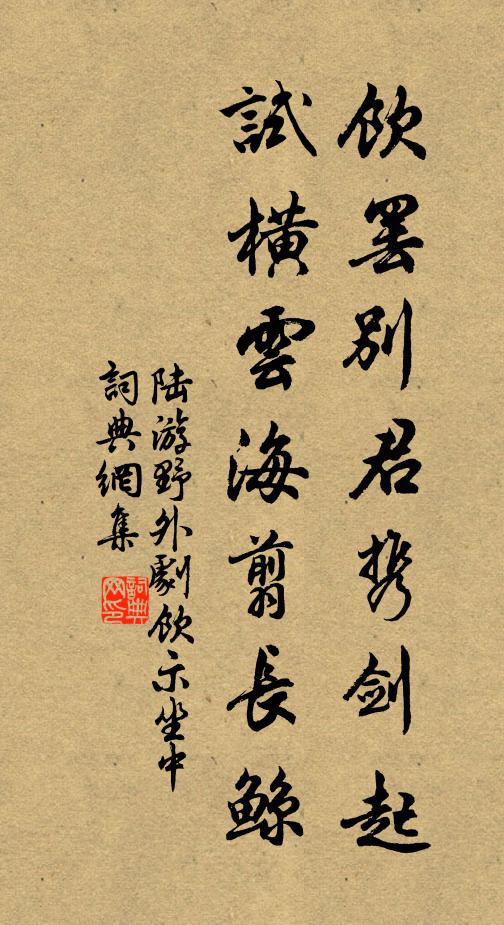 飲罷別君携剑起
試橫雲海翦長鯨
陆游野外劇飲示坐中
詞典網集
詞典网印